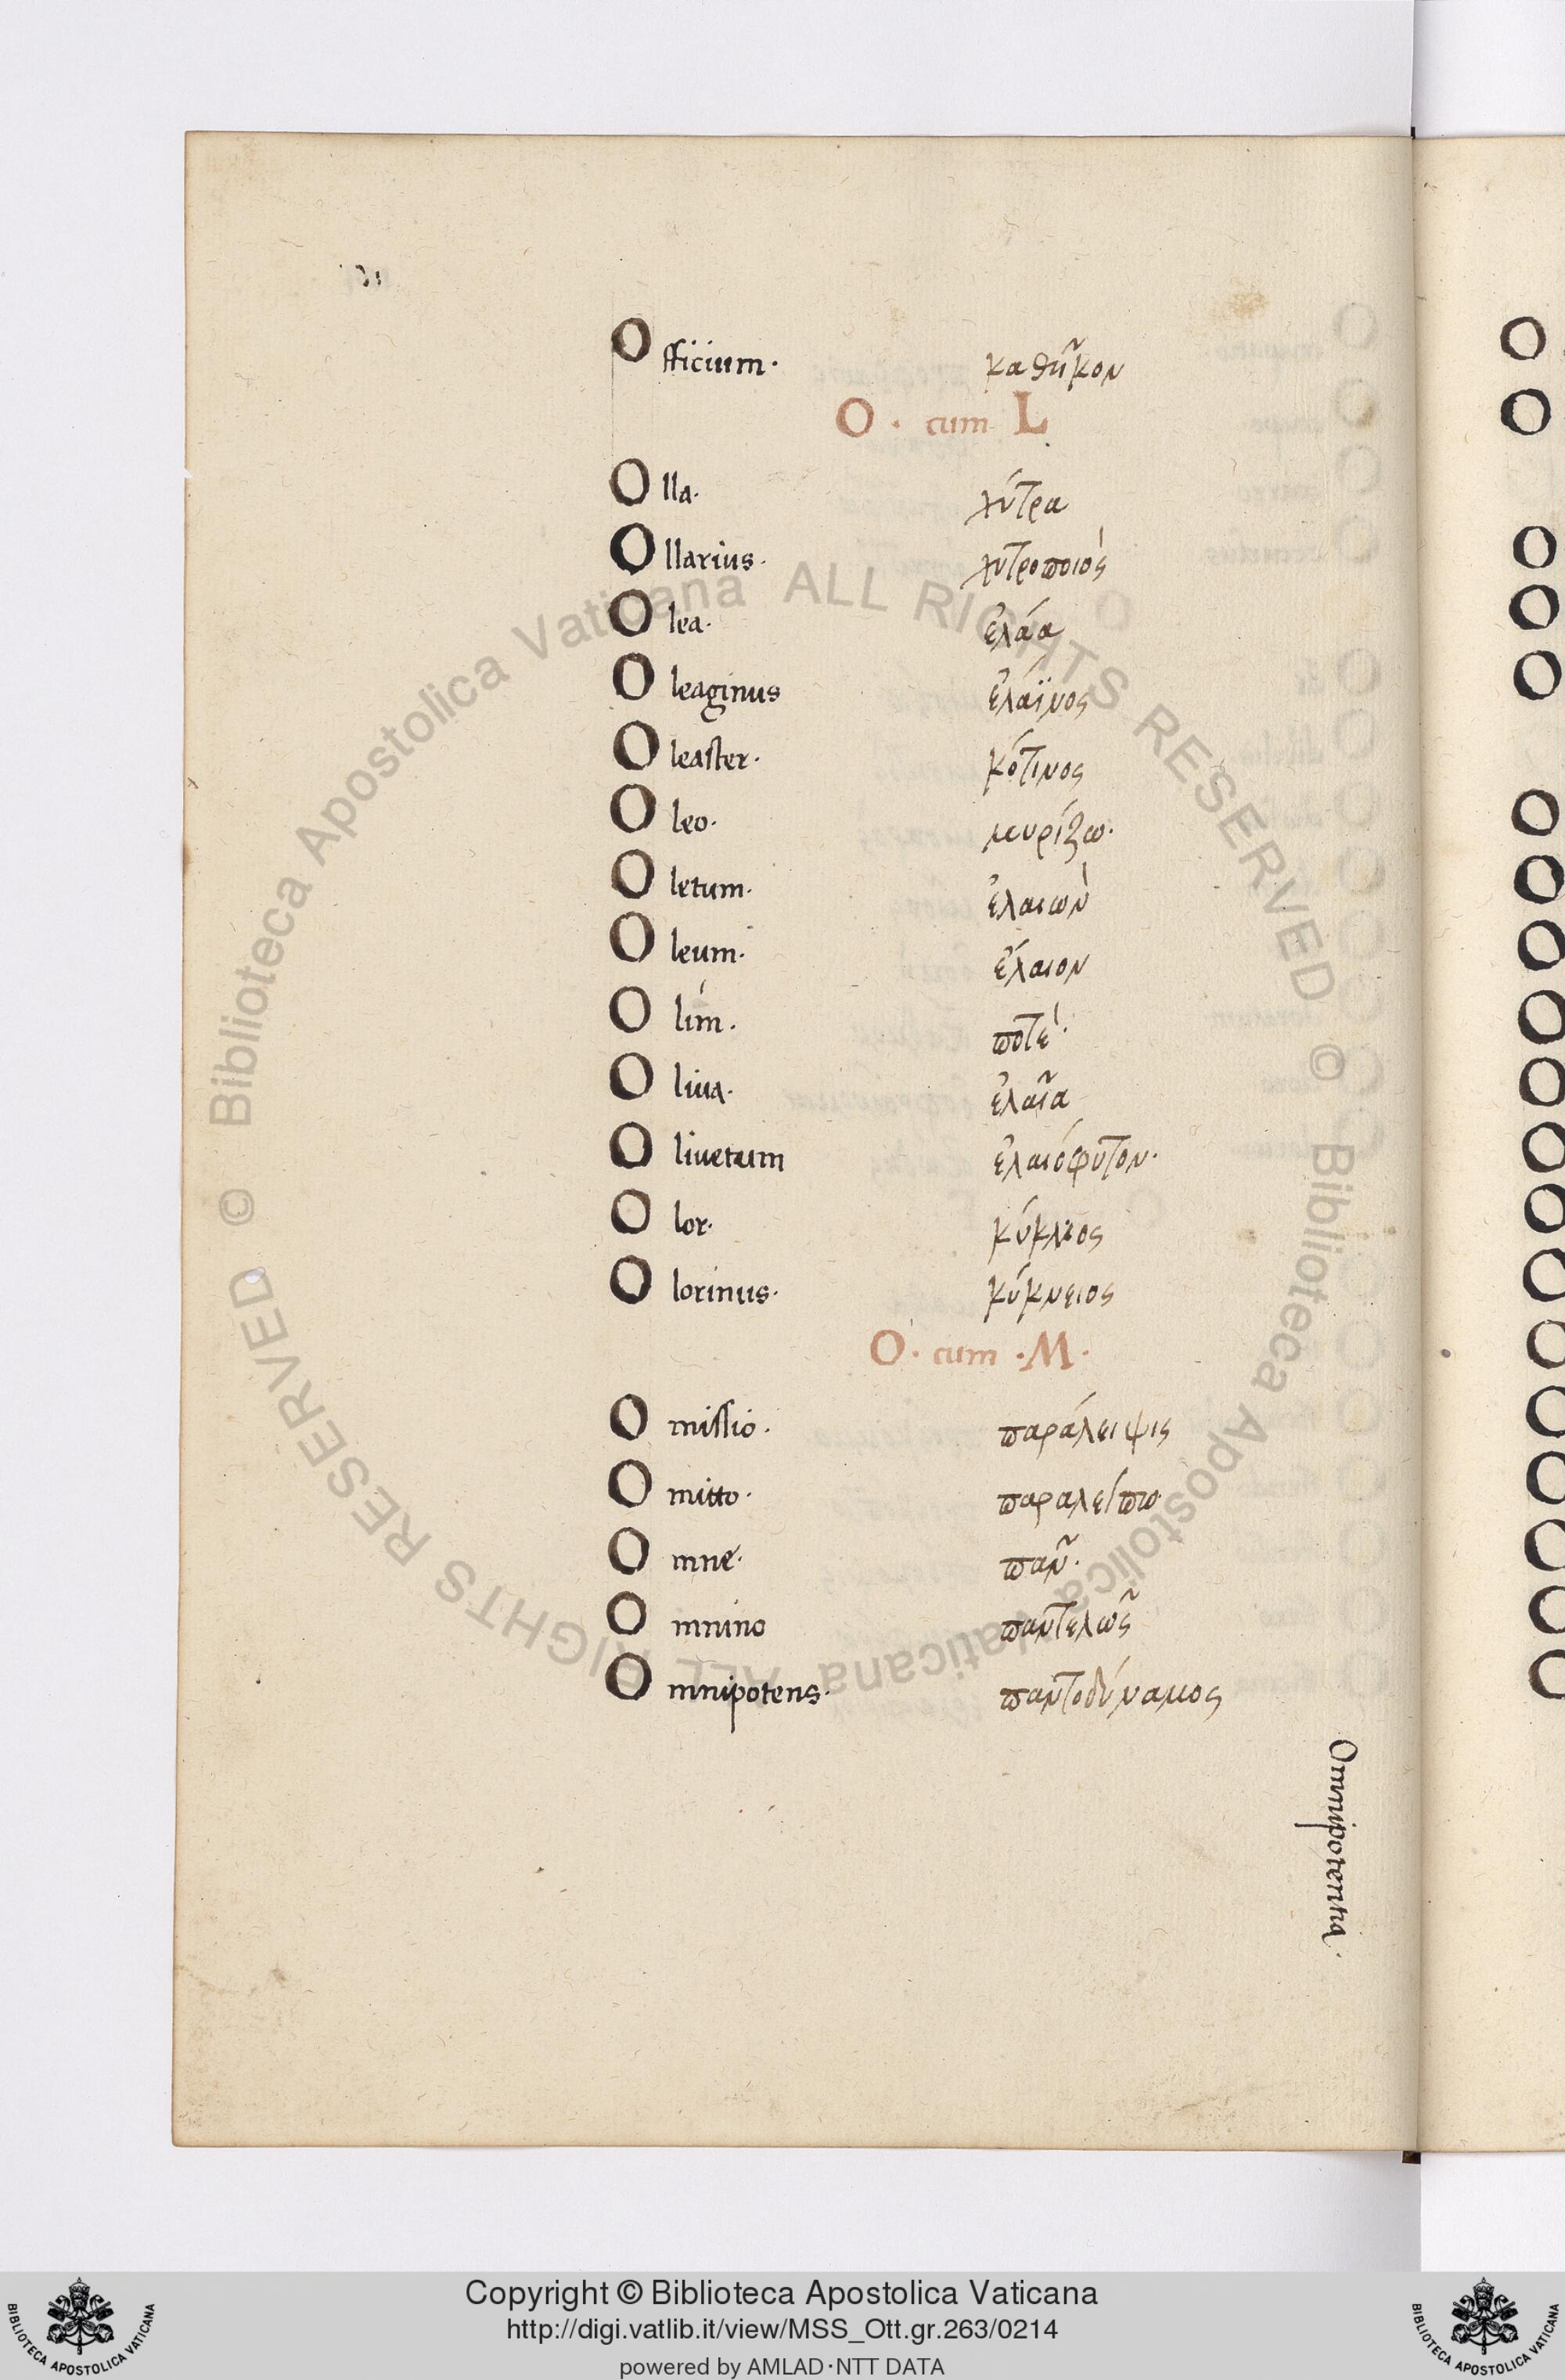 Officium· καθῆκον
O · cum L
Olla· χύτρα
Ollarius· χυτροποιὸς
Olea· ἐλάα
Oleaginus ἐλάϊνος
Oleaster· κότινος
Oleo· μυρίζω·
Oletum· ἐλαιὼν
Oleum· ἔλαιον
Olim· ποτὲ·
Oliua· ἐλαῖα
Oliuetum ἐλαιόφυτον·
Olor·
Olorinus· κύκνειος
O· cum ·M·
Omissio· παράλειψις
Omitto· παραλείπω
Omne· πᾶν·
Omnino παντελῶς
Omnipotens· παντοδύναμος
Omnipotentia·
Copyright © Biblioteca Apostolica Vaticana
http://digi.vatlib.it/view/MSS_Ott.gr.263/0214
powered by AMLAD·NTT DATA
BIBLIOTECA APOSTOLICA VATICANA
BIBLIOTECA APOSTOLICA VATICANA
© Biblioteca Apostolica Vaticana ALL RIGHTS RESERVED
© Biblioteca Apostolica Vaticana ALL RIGHTS RESERVED